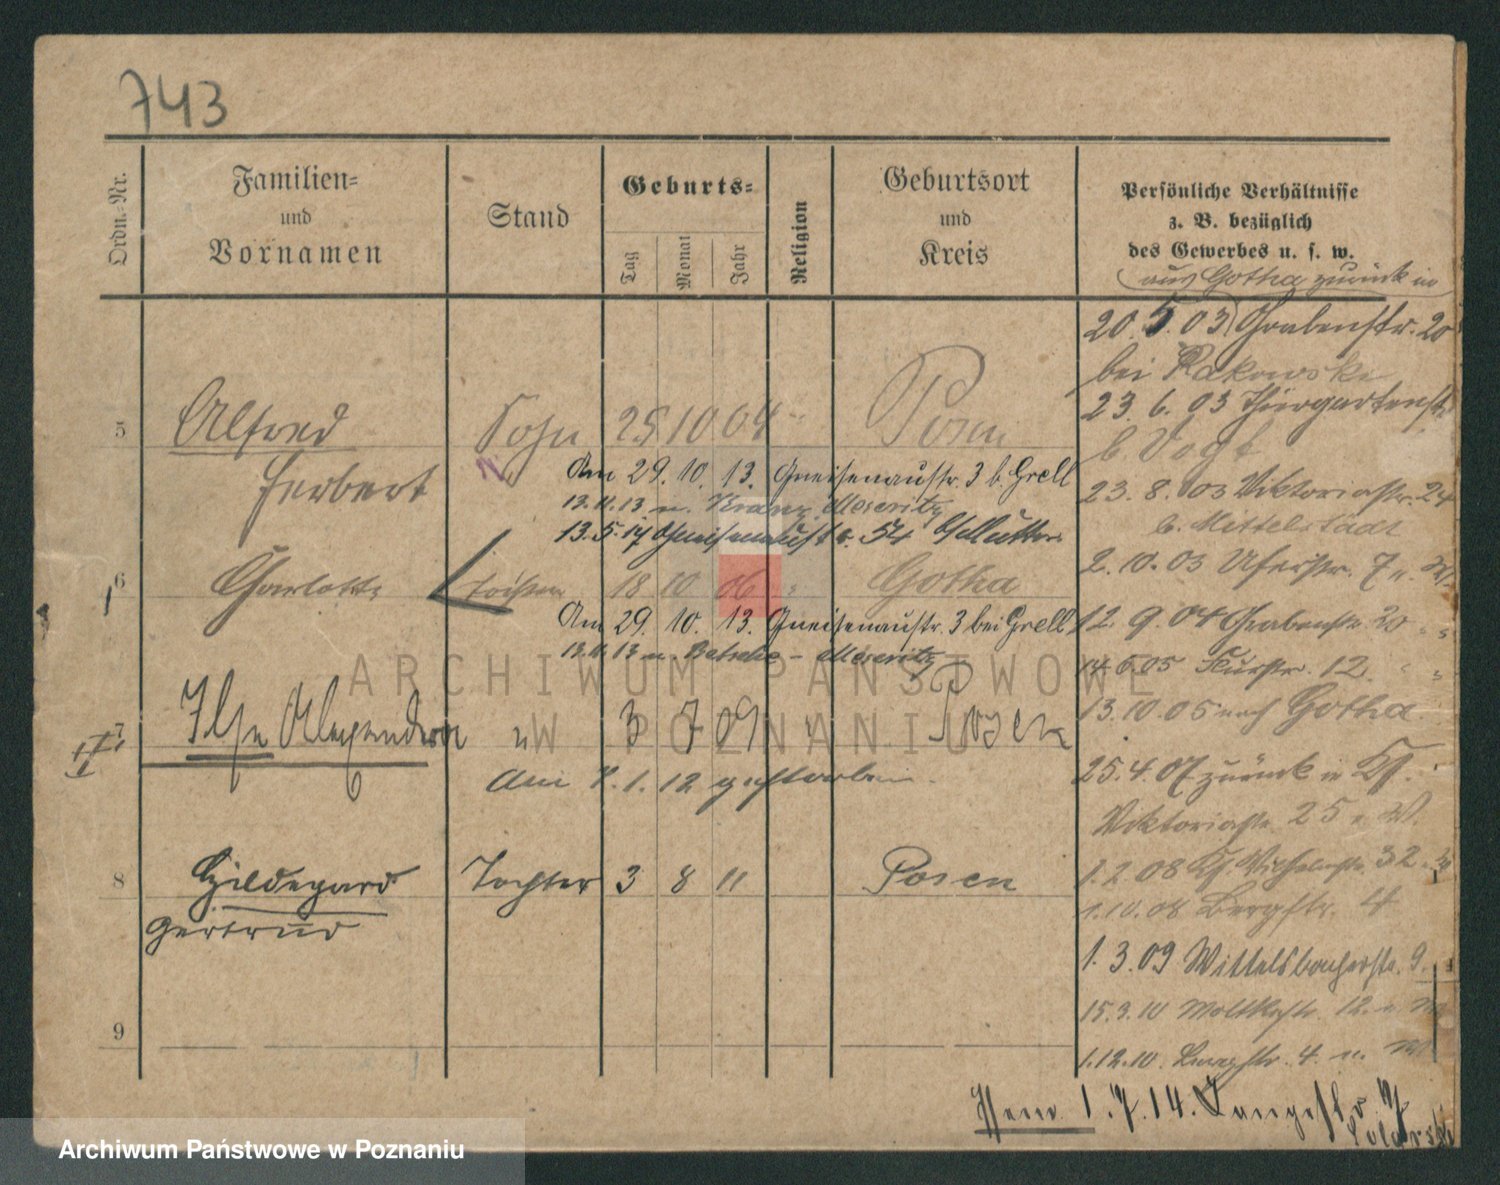 743
Ordn.-Nr.
Familien-
und
Vornamen
Stand
Geburts-
Tag
Monat
Jahr
Religion
Geburtsort
und
Kreis
Persönliche Verhältnisse
z. B. bezüglich
des Gewerbes u. s. w.
aus Gotha zurück in
20. 5. 03 Grabenstr. 20
bei Rakowski
23. 6. 03 Thiergartenstr.
b. Vogt
23. 8. 03 Viktoriastr. 24
b. Mittelstädt
2. 10. 03 Uferstr. 7
12. 9. 04 Grabenstr. 20
14. 6. 05 Flurstr. 12
13. 10. 05 nach Gotha
25. 4. 07 zurück in
Viktoriastr. 25 v. W.
1. 2. 08 Wilhelmstr. 32
1. 10. 08 Bergstr. 4
1. 3. 09 Wittelsbacherstr. 9.
15. 3. 10 Moltkestr. 12.
1. 12. 10. 4.
5 Alfred Sohn 25 10 04 Posen
Herbert
Am 29. 10. 13. Gneisenaustr. 3 b. Grell
13. 11. 13 n. Kranz Meseritz
13. 5. 14 Gneisenaustr. 54 Mutter
6 Charlotte Tochter 18 10 06 " Gotha
Am 29. 10. 13. Gneisenaustr. 3 bei Grell
13. 11. 13 n. Betsche - Meseritz
7 Ilse Alexandra " 3 7 09 " Posen
am 1. 12 gestorben.
8 Hildegard Tochter 3 8 11 Posen
Gertrud
9
1. 7. 14. Langestr. 7
ARCHIWUM PAŃSTWOWE
W POZNANIU
Archiwum Państwowe w Poznaniu